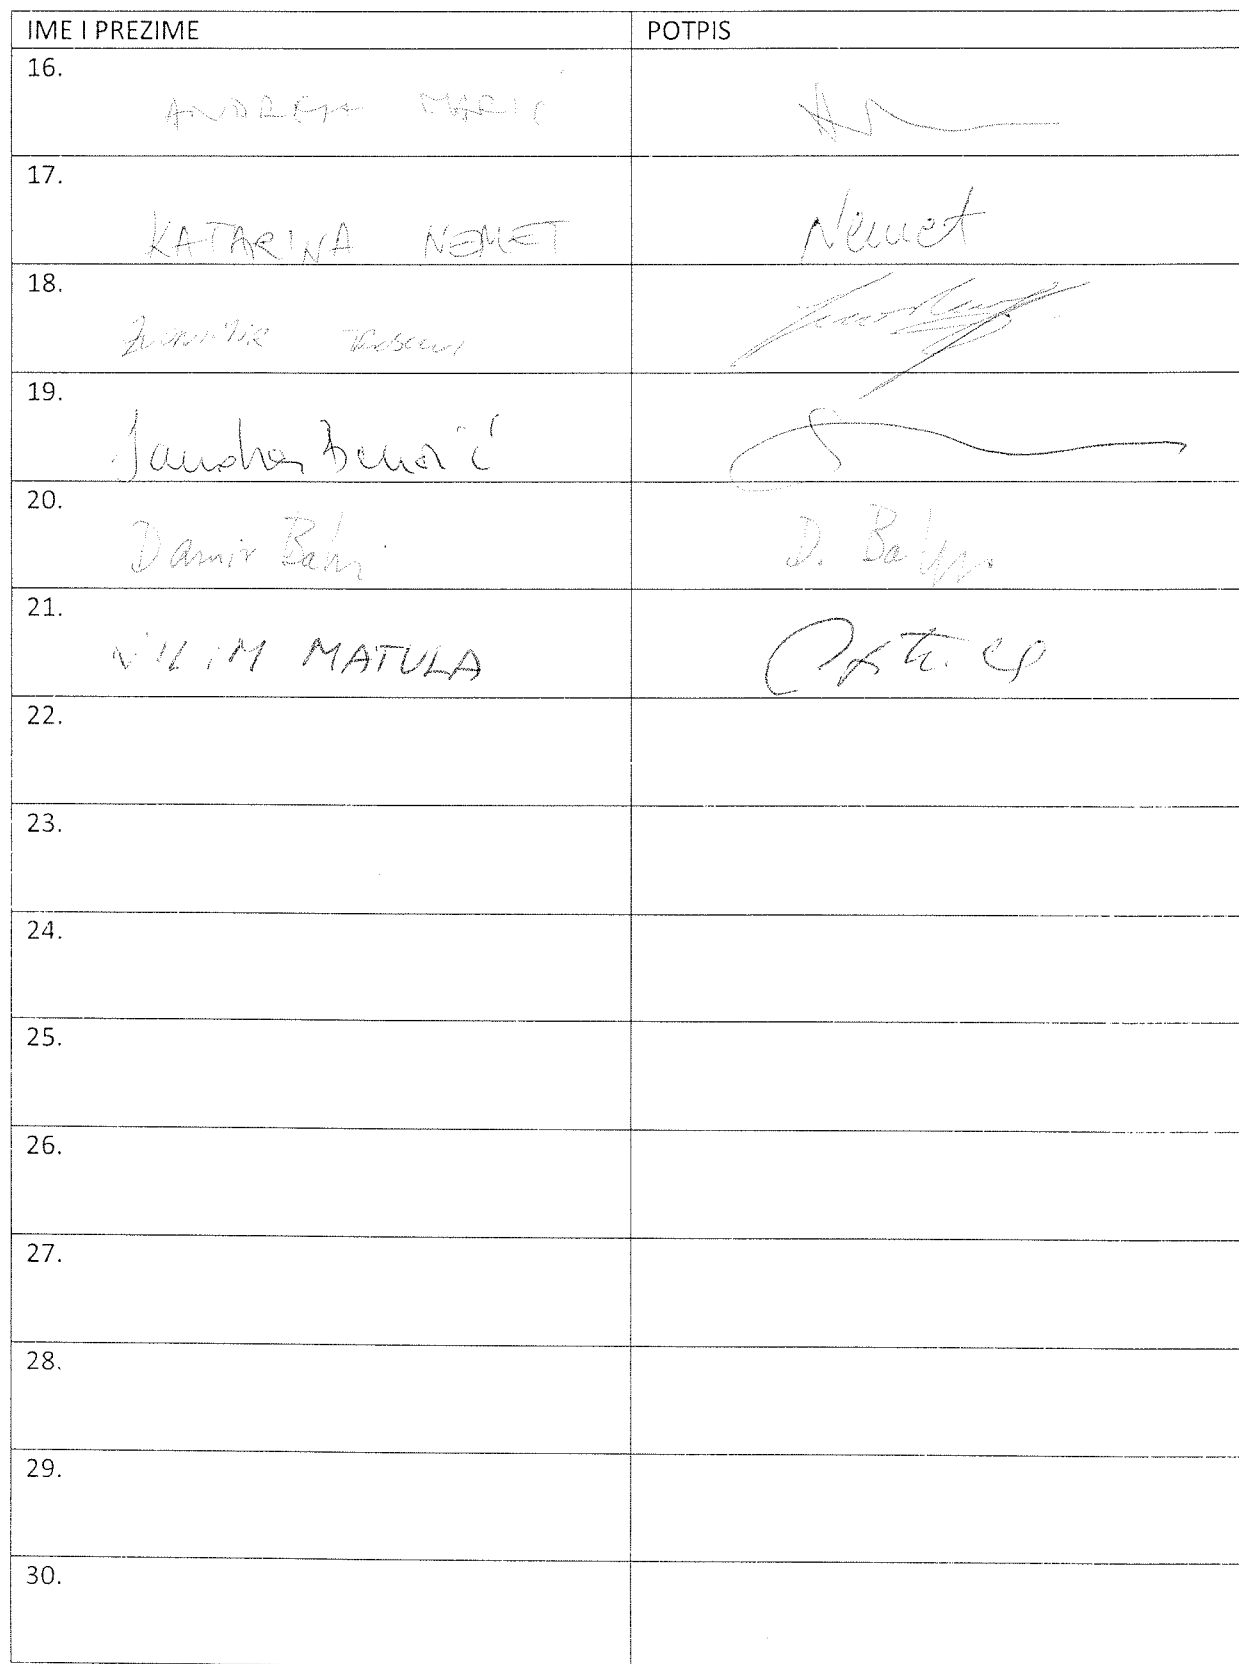 IME I PREZIME POTPIS
16.
ANDREJA MARIĆ
17.
KATARINA NEMET Nemet
18.
19.
Sandra Benčić
20.
Damir D. 
21.
VILIM MATULA
22.
23.
24.
25.
26.
27.
28.
29.
30.